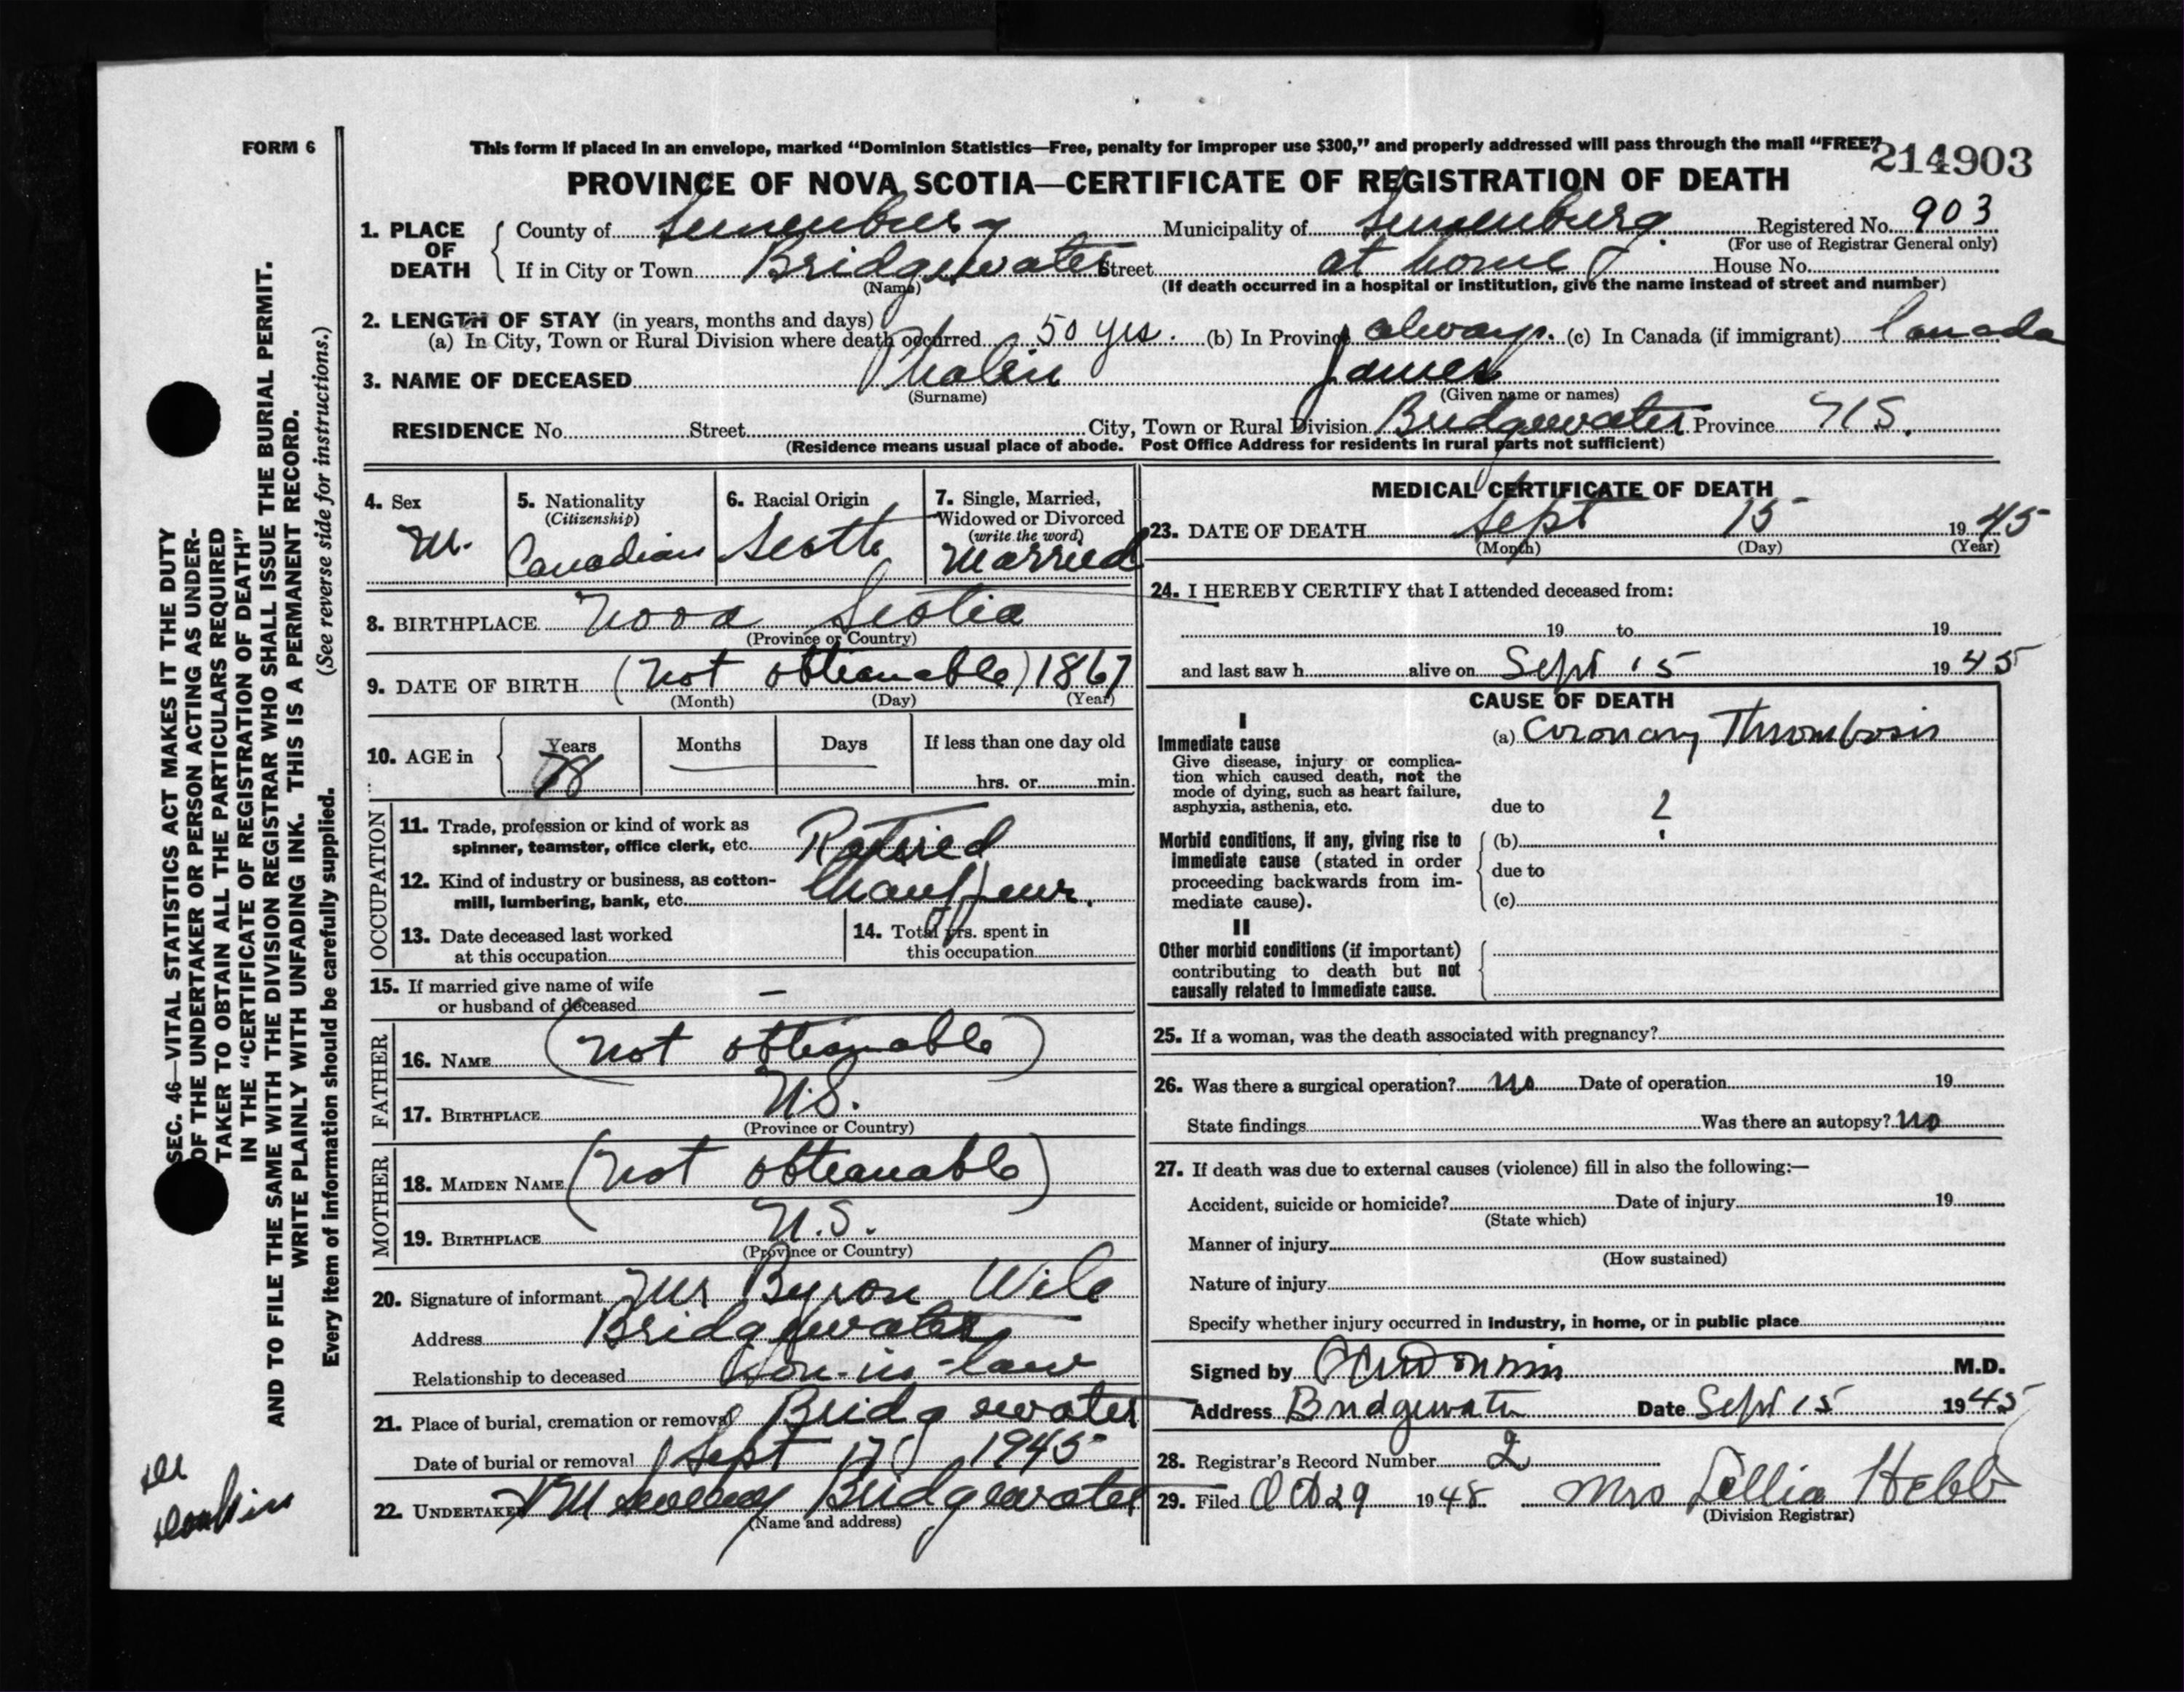 FORM 6
This form if placed in an envelope, marked “Dominion Statistics—Free, penalty for improper use $300,” and properly addressed will pass through the mail “FREE”
214903
PROVINCE OF NOVA SCOTIA—CERTIFICATE OF REGISTRATION OF DEATH
1. PLACE OF DEATH
County of Lunenburg Municipality of Lunenburg Registered No. 903
(For use of Registrar General only)
If in City or Town Bridgewater Street at home House No.
(Name) (If death occurred in a hospital or institution, give the name instead of street and number)
2. LENGTH OF STAY (in years, months and days)
(a) In City, Town or Rural Division where death occurred 50 yrs. (b) In Province always. (c) In Canada (if immigrant) Canada
3. NAME OF DECEASED Phalen James
(Surname) (Given name or names)
RESIDENCE No. Street City, Town or Rural Division Bridgewater Province N.S.
(Residence means usual place of abode. Post Office Address for residents in rural parts not sufficient)
4. Sex M.
5. Nationality (Citizenship) Canadian
6. Racial Origin Scotch
7. Single, Married, Widowed or Divorced (write the word) Married
8. BIRTHPLACE Nova Scotia
(Province or Country)
9. DATE OF BIRTH (not obtianable) 1867
(Month) (Day) (Year)
10. AGE in Years Months Days If less than one day old
78 hrs. or min.
OCCUPATION
11. Trade, profession or kind of work as spinner, teamster, office clerk, etc. Retired
12. Kind of industry or business, as cotton-mill, lumbering, bank, etc. Chauffeur.
13. Date deceased last worked at this occupation
14. Total yrs. spent in this occupation
15. If married give name of wife or husband of deceased –
FATHER
16. NAME (not obtianable)
17. BIRTHPLACE N.S.
(Province or Country)
MOTHER
18. MAIDEN NAME (not obtianable)
19. BIRTHPLACE N.S.
(Province or Country)
20. Signature of informant Mr Byron Wile
Address Bridgewater
Relationship to deceased Son-in-law
21. Place of burial, cremation or removal Bridgewater
Date of burial or removal Sept 17 1945
22. UNDERTAKER Bridgewater
(Name and address)
MEDICAL CERTIFICATE OF DEATH
23. DATE OF DEATH Sept 15 1945
(Month) (Day) (Year)
24. I HEREBY CERTIFY that I attended deceased from:
19 to 19
and last saw h alive on Sept 15 1945
CAUSE OF DEATH
I
Immediate cause
Give disease, injury or complication which caused death, not the mode of dying, such as heart failure, asphyxia, asthenia, etc.
(a) Coronary Thrombosis
due to ?
Morbid conditions, if any, giving rise to immediate cause (stated in order proceeding backwards from immediate cause).
(b)
due to
(c)
II
Other morbid conditions (if important) contributing to death but not causally related to immediate cause.
25. If a woman, was the death associated with pregnancy?
26. Was there a surgical operation? no Date of operation 19
State findings Was there an autopsy? no
27. If death was due to external causes (violence) fill in also the following:—
Accident, suicide or homicide? Date of injury 19
(State which)
Manner of injury
(How sustained)
Nature of injury
Specify whether injury occurred in industry, in home, or in public place
Signed by M.D.
Address Bridgewater Date Sept 15 1945
28. Registrar's Record Number 2
29. Filed Oct 29 1948 Mrs Lellia Hebb
(Division Registrar)
SEC. 46—VITAL STATISTICS ACT MAKES IT THE DUTY
OF THE UNDERTAKER OR PERSON ACTING AS UNDER-
TAKER TO OBTAIN ALL THE PARTICULARS REQUIRED
IN THE “CERTIFICATE OF REGISTRATION OF DEATH”
AND TO FILE THE SAME WITH THE DIVISION REGISTRAR WHO SHALL ISSUE THE BURIAL PERMIT.
WRITE PLAINLY WITH UNFADING INK. THIS IS A PERMANENT RECORD.
Every item of information should be carefully supplied. (See reverse side for instructions.)